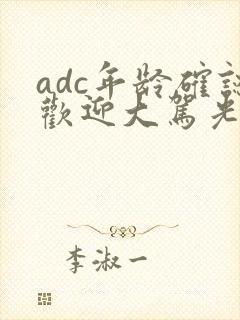 adc年龄確認
歡迎大駕光
李淑一